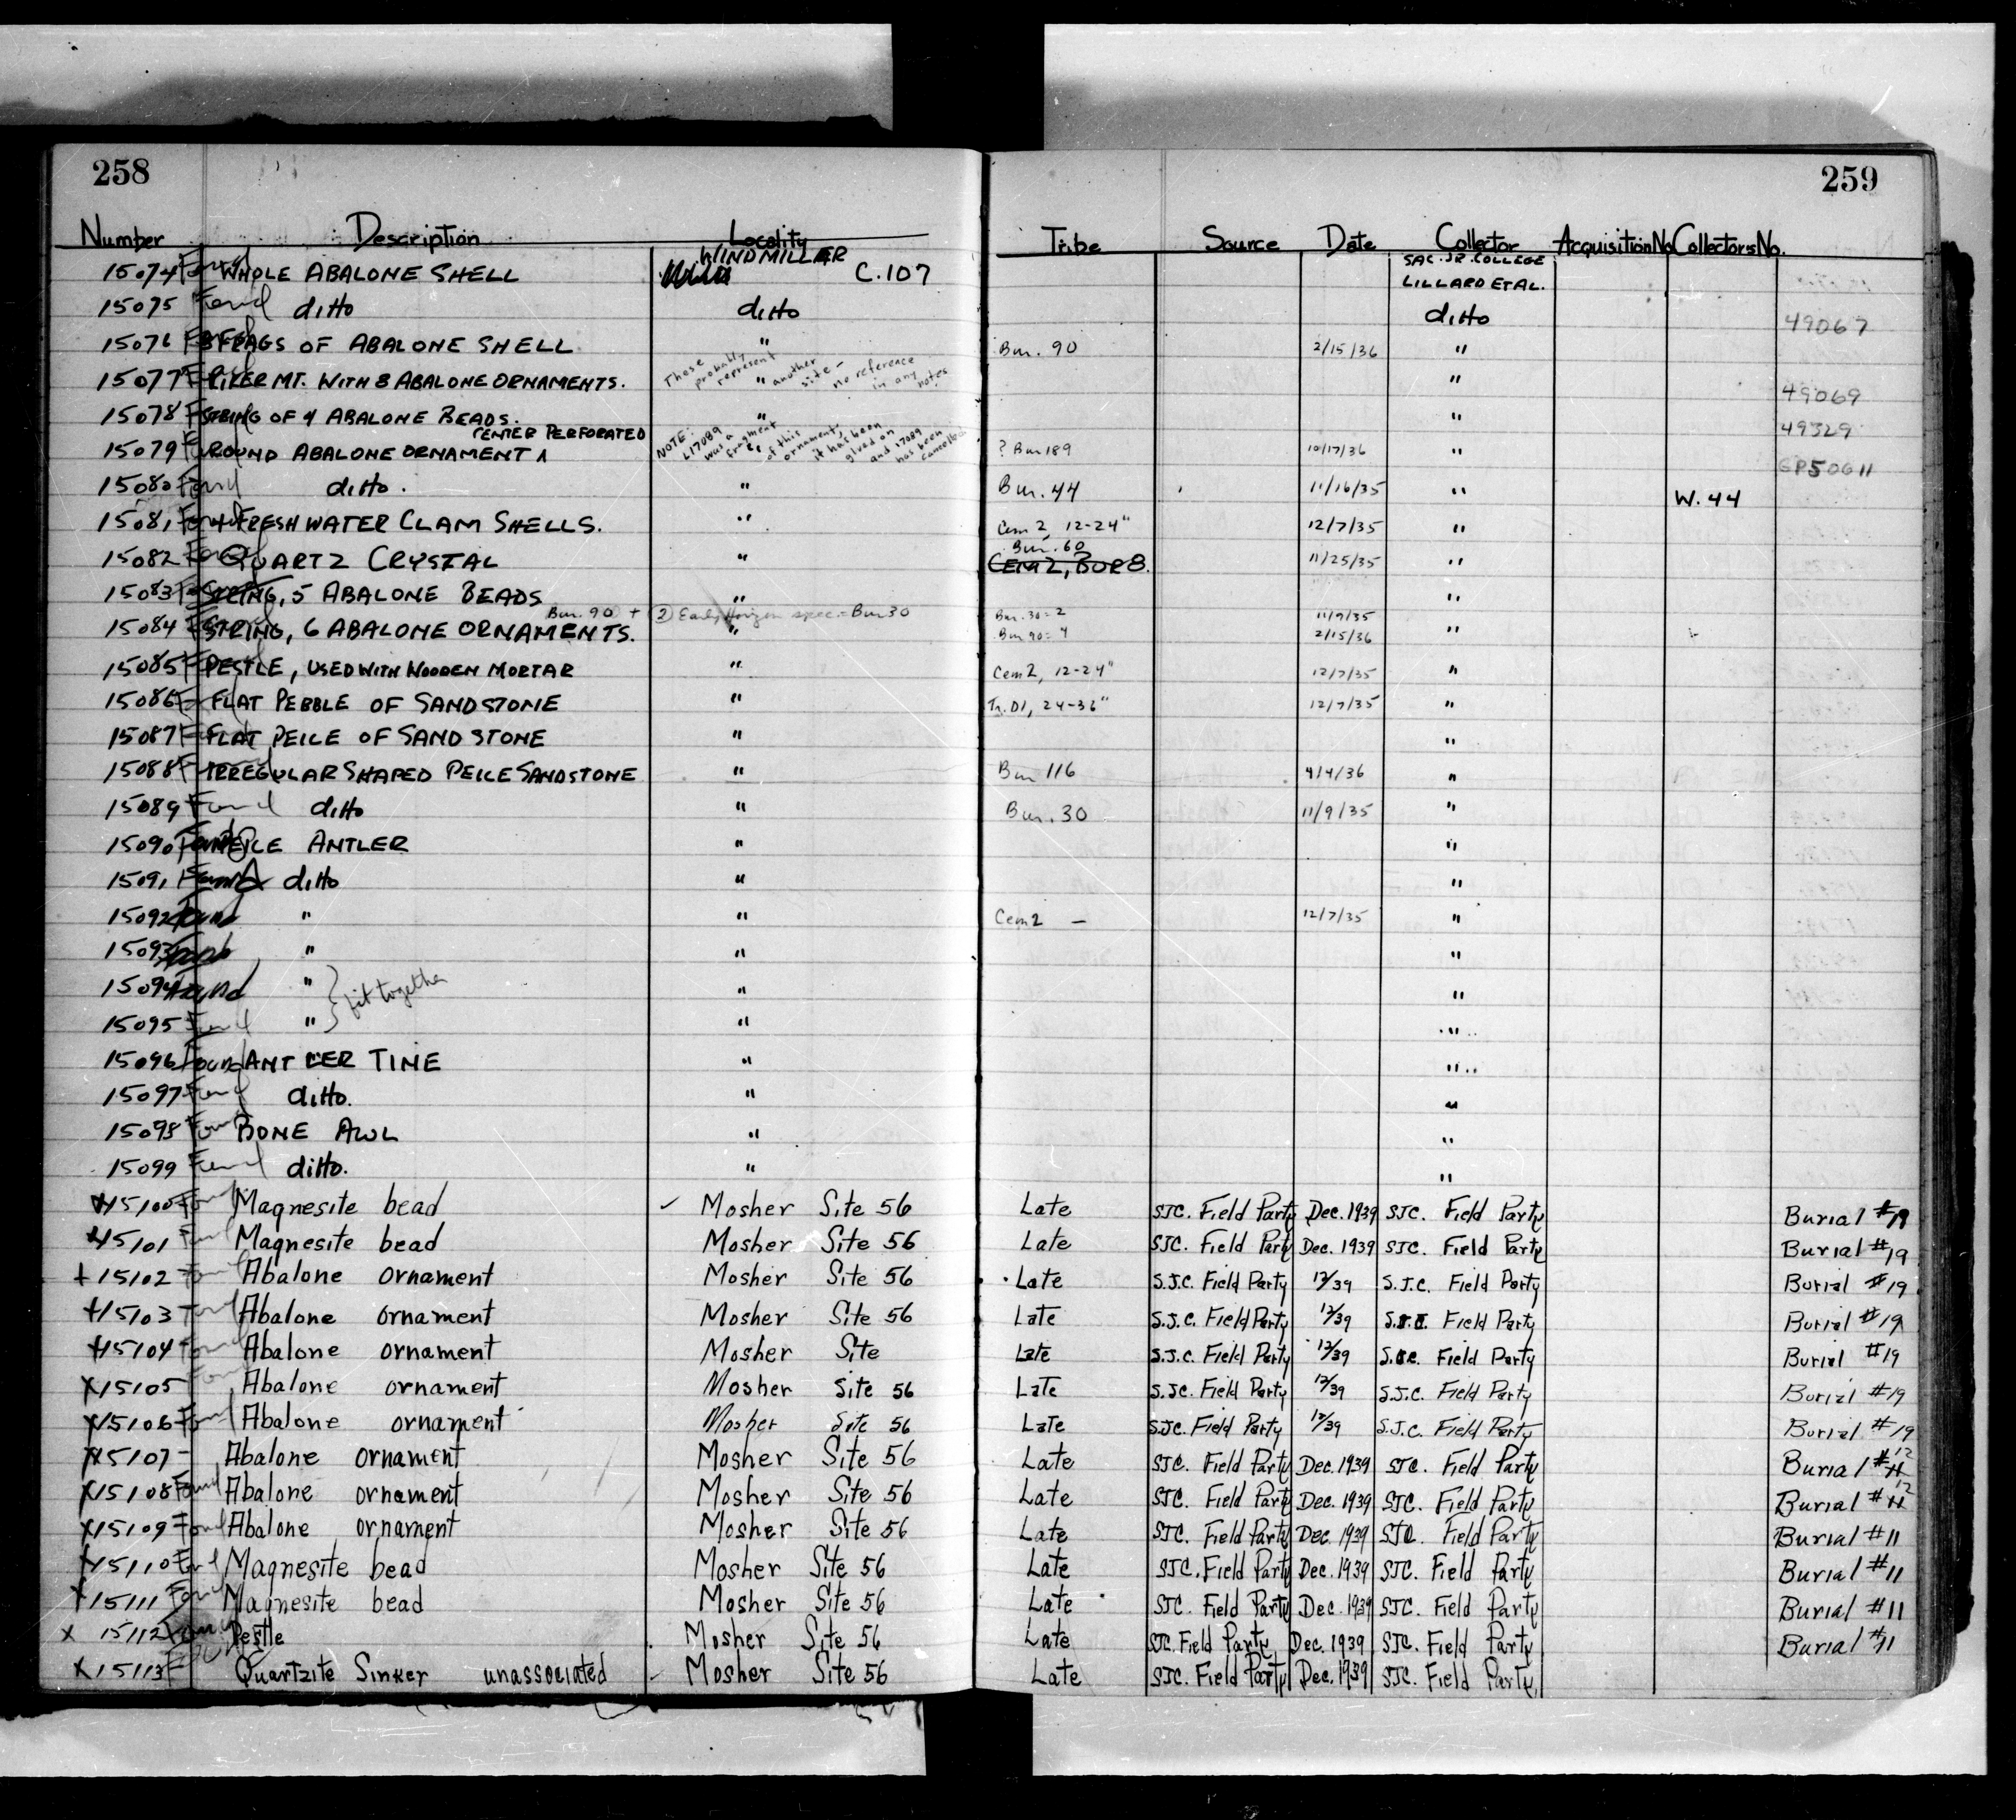 258
259
Number Description Locality Tribe Source Date Collector Acquisition No. Collectors No.
WINDMILLER SAC. JR. COLLEGE
15074 Found WHOLE ABALONE SHELL C.107 LILLARD ET AL.
15075 Found ditto ditto ditto 49067
15076 Found 3 FRAGS OF ABALONE SHELL " Bur. 90 2/15/36 "
These probably represent another site - no reference in any notes
15077 MT. WITH 8 ABALONE ORNAMENTS. " " 49069
15078 STRING OF 4 ABALONE BEADS. " " 49329
CENTER PERFORATED
NOTE: L17089 was a fragment of this ornament, it has been glued on and 17089 has been cancelled
15079 ROUND ABALONE ORNAMENT ^ " ? Bur 189 10/17/36 " 50611
15080 Found ditto. " Bur. 44 11/16/35 " W. 44
15081 Found 4 FRESH WATER CLAM SHELLS. " Cem 2 12-24" 12/7/35 "
Bur. 60
15082 Found QUARTZ CRYSTAL " CEM 2, BUR 8. 11/25/35 "
15083 STRING, 5 ABALONE BEADS " "
Bur. 90 + (2) Early Horizon spec. = Bur 30 Bur. 30 = 2 11/9/35
15084 STRING, 6 ABALONE ORNAMENTS. " Bur 90 = 4 2/15/36 "
15085 PESTLE, USED WITH WOODEN MORTAR " Cem 2, 12-24" 12/7/35 "
15086 FLAT PEBBLE OF SANDSTONE " Tr. D1, 24-36" 12/7/35 "
15087 FLAT PEICE OF SAND STONE " "
15088 IRREGULAR SHAPED PEICE SANDSTONE " Bur 116 4/4/36 "
15089 Found ditto " Bur. 30 11/9/35 "
15090 Found PEICE ANTLER " "
15091 Found ditto " "
15092 Found " " Cem 2 — 12/7/35 "
15093 Found " " "
15094 Found " " "
fit together
15095 Found " " "
15096 Found ANTLER TINE " "
15097 Found ditto. " "
15098 Found BONE AWL " "
15099 Found ditto. " "
x15100 Found Magnesite bead ✓ Mosher Site 56 Late SJC. Field Party Dec. 1939 SJC. Field Party Burial #19
x15101 Found Magnesite bead Mosher Site 56 Late SJC. Field Party Dec. 1939 SJC. Field Party Burial #19
x15102 Found Abalone ornament Mosher Site 56 Late S.J.C. Field Party 12/39 S.J.C. Field Party Burial #19
x15103 Found Abalone ornament Mosher Site 56 Late S.J.C. Field Party 12/39 S.J.C. Field Party Burial #19
x15104 Found Abalone ornament Mosher Site Late S.J.C. Field Party 12/39 S.J.C. Field Party Burial #19
x15105 Found Abalone ornament Mosher Site 56 Late S.J.C. Field Party 12/39 S.J.C. Field Party Burial #19
x15106 Found Abalone ornament Mosher Site 56 Late S.J.C. Field Party 12/39 S.J.C. Field Party Burial #19
x15107 - Abalone ornament Mosher Site 56 Late SJC. Field Party Dec. 1939 SJC. Field Party Burial #11 12
x15108 Found Abalone ornament Mosher Site 56 Late SJC. Field Party Dec. 1939 SJC. Field Party Burial #11 12
x15109 Found Abalone ornament Mosher Site 56 Late SJC. Field Party Dec. 1939 SJC. Field Party Burial #11
x15110 Found Magnesite bead Mosher Site 56 Late SJC. Field Party Dec. 1939 SJC. Field Party Burial #11
x15111 Found Magnesite bead Mosher Site 56 Late SJC. Field Party Dec. 1939 SJC. Field Party Burial #11
x 15112 Found Pestle Mosher Site 56 Late SJC. Field Party Dec. 1939 SJC. Field Party Burial #11
x15113 Quartzite Sinker unassociated Mosher Site 56 Late SJC. Field Party Dec. 1939 SJC. Field Party